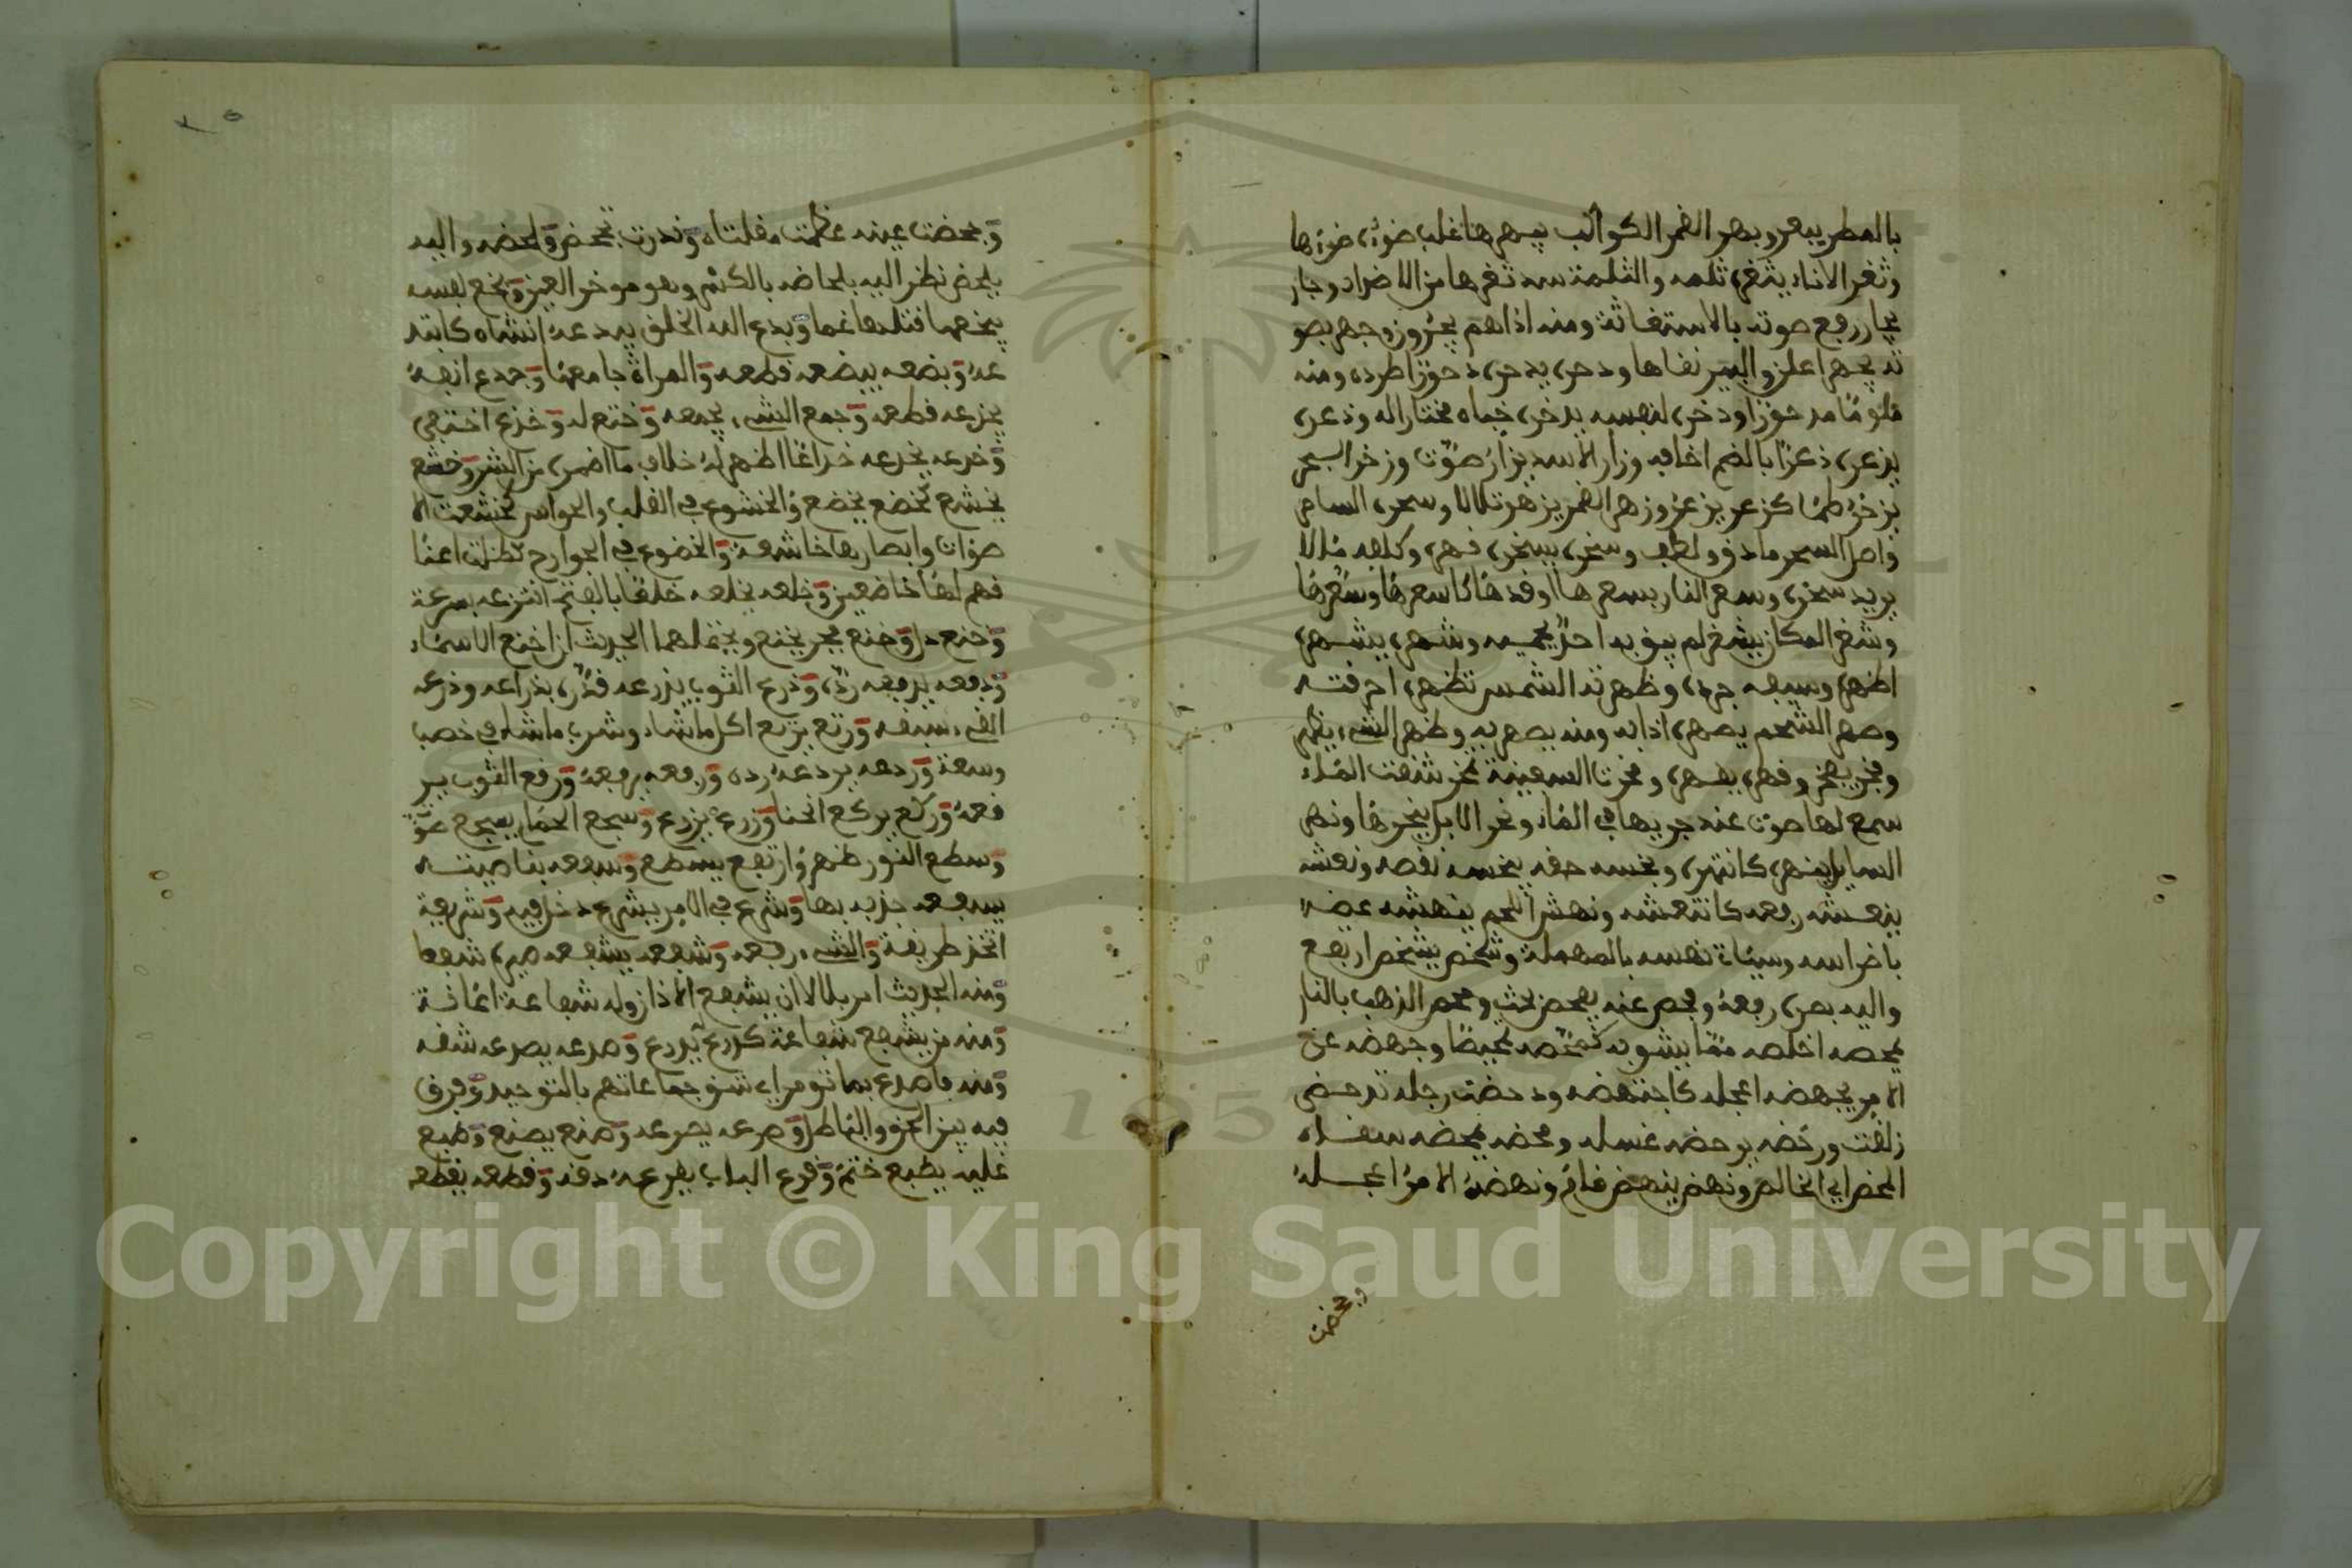 بالمطر يبعر وبهر القمر الكواكب يبهرها غلب ضوءه ضوءها
وثغر الاناء يثغره ثلمه والثلمة سد ثغرها من الاضداد وجار
يجار رفع صوته بالاستغاثة ومنه اذاهم يجرون وجهر بصو
ته يجهر اعلن والبير نقاها ودحره يدحره دحورا طرده ومنه
ملوما مدحورا ودخره لنفسه يدخره خباه مختارا له وذعره
يذعره ذعرا بالضم اخافه وزار الاسد يزار صوت وزخر البحر
يزخر طما كزعر يزعر وزهر القمر يزهر تلالا وسحره الساحر
واصل السحر ما دق ولطف وسخره يسخره قهره وكلفه مالا
يريد سخره وسعر النار يسعرها اوقدها كاسعرها وسعرها
وشغر المكان يشغر لم يبق به احد يحميه وشهره يشهره
اظهره وسيفه جرده وظهرته الشمس تظهره احرقته
وصهر الشحم يصهره اذابه ومنه يصهر به وظهر الشيء يظهر
وفخر يفخر وقهره يقهره ومخرت السفينة تمخر شقت الماء
سمع لها صوت عند جريها في الماء ونحر الابل ينحرها ونهر
السايل ينهره كانتهره وبخسه حقه يبخسه نقصه ونعشه
ينعشه رفعه كانتعشه ونهش اللحم ينهشه عضه
باضراسه وسياة نهسه بالمهملة وشخص يشخص ارتفع
واليه بصره رفعه وفحص عنه يفحص بحث ومحص الذهب بالنار
يمحصه اخلصه مما يشوبه كمحصه تمحيصا وجهضه عن
الامر يجهضه اعجله كاجهضه ودحضت رجله تدحض
زلقت ورحضه يرحضه غسله ومحضه يمحضه سقاه
المحض اي الخالص ونهض ينهض قام ونهضه الامر اعجله
وبخضت
وبخضت عينه عظمت مقلتاه وندرت تبخض ولحضه واليه
يلحض نظر اليه بلحاضه بالكسر وهو موخر العين وبخع نفسه
يبخعها قتلها غما وبدع الله الخلق يبدعه انشاه كابتد
عه وبضعه يبضعه قطعه والمراة جامعها وجدع انفه
يجدعه قطعه وجمع الشيء يجمعه وختع له وخدع اختفى
وخدعه يخدعه خداعا اظهر له خلاف ما اضمره من الشر وخشع
يخشع كخضع يخضع والخشوع في القلب والحواس كخشعت الا
صوات وابصارها خاشعة والخضوع في الجوارح فظلت اعنا
قهم لها خاضعين وخلعه يخلعه خلعا بالفتح انتزعه بسرعة
وخنع ذل وخنع فجر يخنع ويحتملهما الحديث ان اخنع الاسماء
ودفعه يدفعه رده وذرع الثوب يذرعه قدره بذراعه وذرعه
القيء سبقه ورتع يرتع اكل ما شاء وشرب ما شاء في خصب
وسعة وردعه يردعه رده ورفعه يرفعه ورقع الثوب ير
قعه وركع يركع انحنا وزرع يزرع وسجع الحمام يسجع صوت
وسطع النور ظهر وارتفع يسطع وسفعه بناصيته
يسفعه جذبه بها وشرع في الامر يشرع دخل فيه وشريعة
اتخذ طريقة والشيء رفعه وشفعه يشفعه صيره شفعا
ومنه الحديث امر بلالا ان يشفع الاذان وله شفاعة اغاثة
ومنه من يشفع شفاعة كدرع يدرع وصدعه يصدعه شقه
ومنه فاصدع بما تومر اي شق جماعاتهم بالتوحيد وفرق
فيه بين الحق والباطل وصرعه يصرعه وصنع يصنع وطبع
عليه يطبع ختم وقرع الباب يقرعه دقه وقطعه يقطعه
Copyright © King Saud University